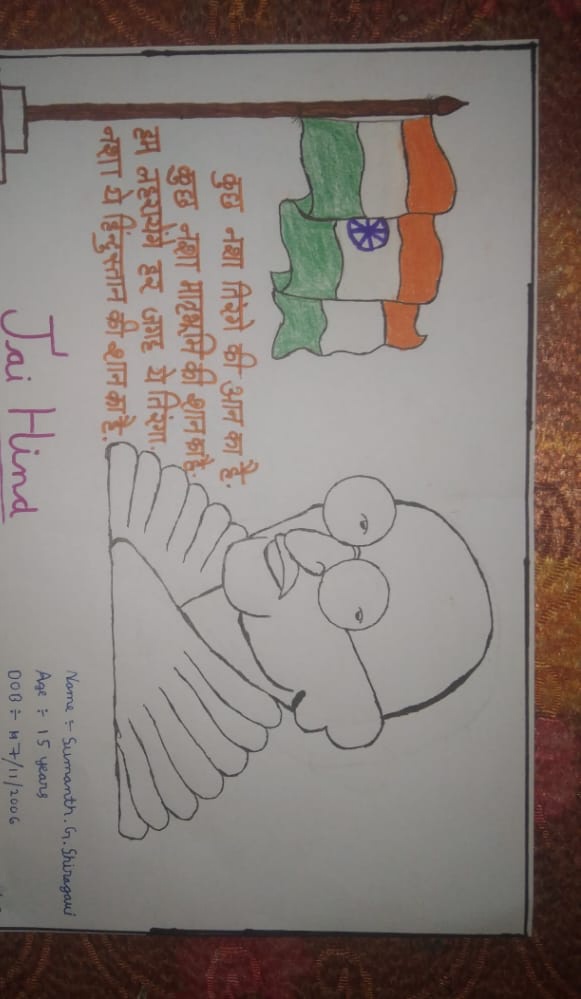 कुछ नशा तिरंगे की आन का है.
कुछ नशा मातृभूमि की शान का है.
हम लहरायेंगे हर जगह ये तिरंगा.
नशा ये हिन्दुस्तान की शान का है.
Jai Hind
Name :- Sumanth. G. Shiragavi
Age :- 15 years
DOB :- 7/11/2006